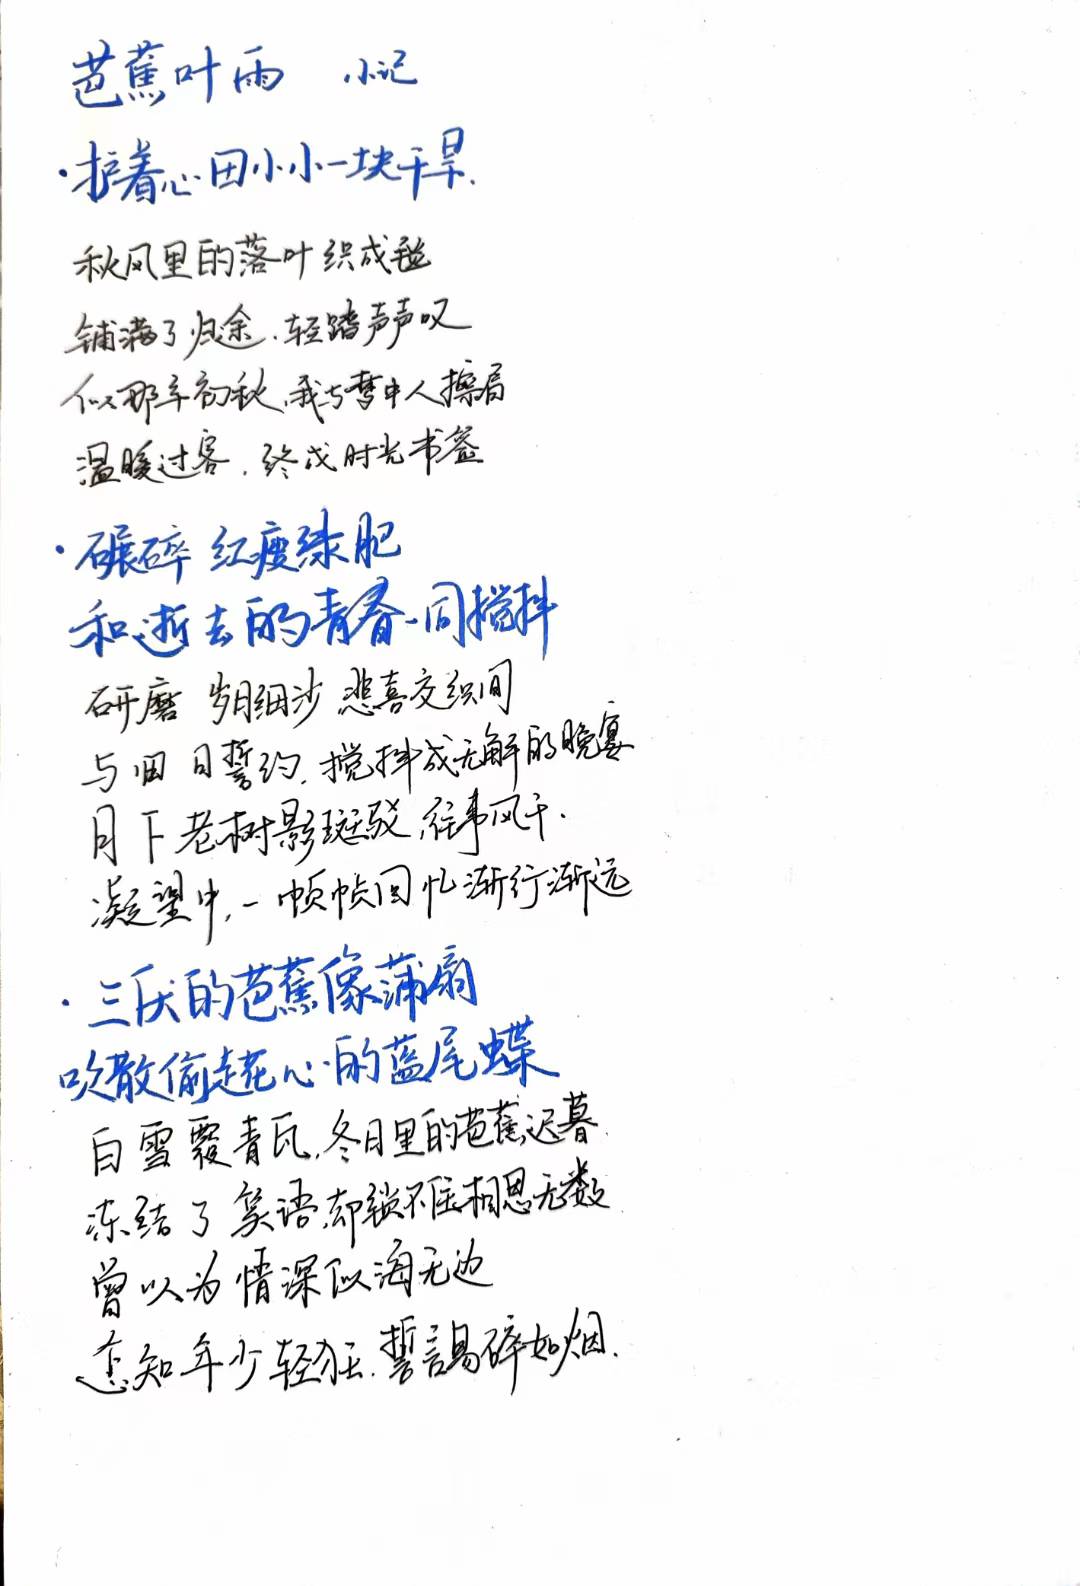 芭蕉叶雨 小记
·护着心田小小一块干旱.
秋风里的落叶织成毯
铺满了归途.轻踏声声叹
似那年初秋,我与梦中人擦肩
温暖过客.终成时光书签
·碾碎 红瘦绿肥
和逝去的青春一同搅拌
研磨 岁月细沙 悲喜交织间
与旧日誓约.搅拌成无解的晚宴
月下老树影斑驳,往事风干.
凝望中,一帧帧回忆渐行渐远
·三伏的芭蕉像蒲扇
吹散偷起花心的蓝尾蝶
白雪覆青瓦,冬日里的芭蕉迟暮.
冻结了笑语,却锁不住相思无数
曾以为情深似海无边
怎知年少轻狂.誓言易碎如烟.